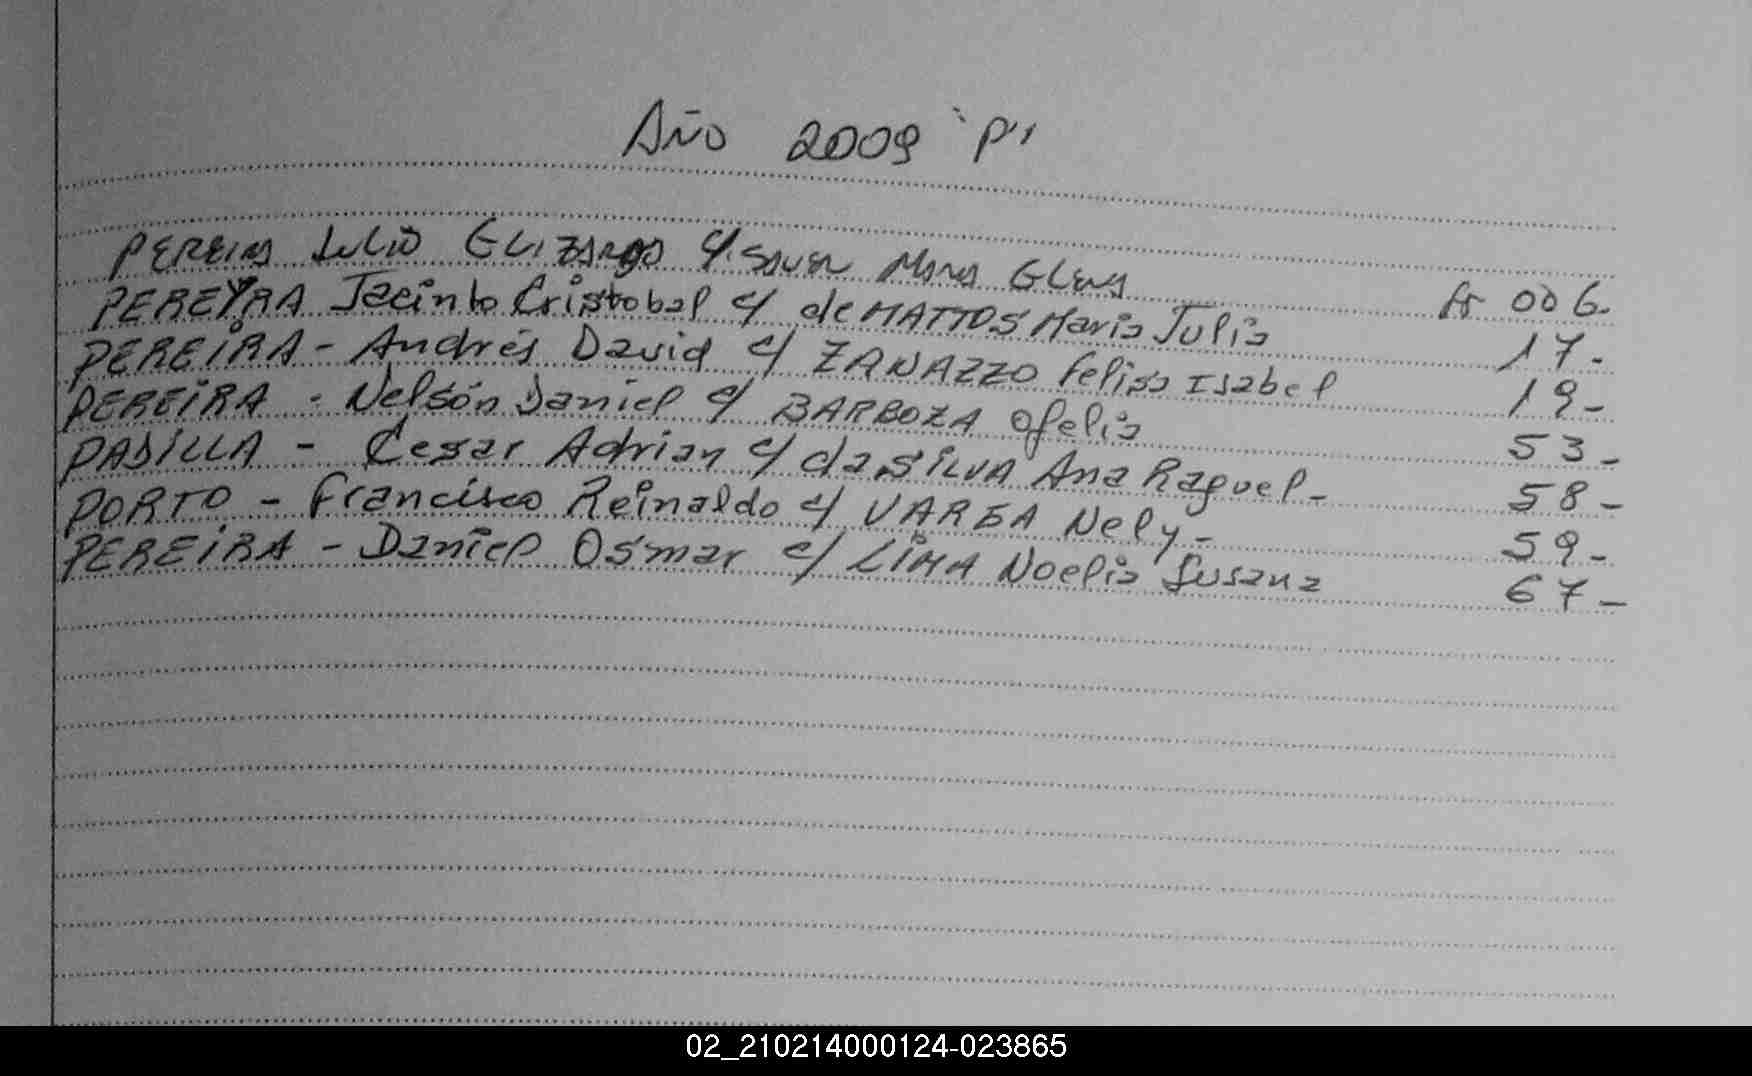 Año 2009 "P"
PEREIRA JULIO ELIZARDO c/ Mara GLENS Ar 006.
PEREYRA Jacinto Cristobal c/ de MATTOS Maria Julia 17.-
PEREIRA - Andrés David c/ ZANAZZO Felisa Isabel 19-
PEREIRA - Nelsón Daniel c/ BARBOZA Ofelia 53-
PADILLA - Cesar Adrian c/ da SILVA Ana Raquel - 58-
PORTO - Francisco Reinaldo c/ VARGA Nely - 59-
PEREIRA - Daniel Osmar c/ LIMA Noelia Susana 67-
02_210214000124-023865